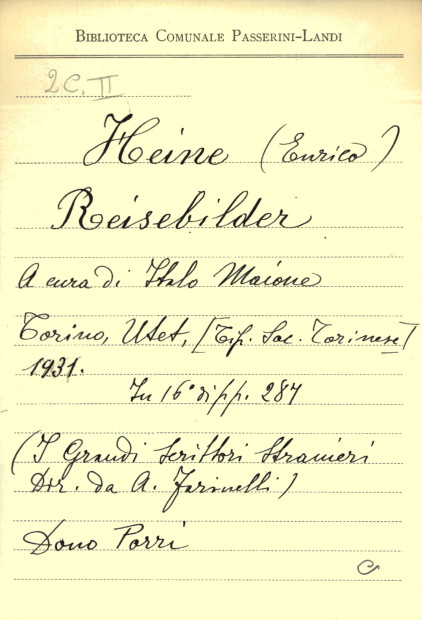 BIBLIOTECA COMUNALE PASSERINI-LANDI
2C. II
Heine (Enrico)
Reisebilder
A cura di Italo Maione
Torino, Utet, [Tip. Soc. Torinese]
1931.
In 16° di pp. 287
(I Grandi Scrittori Stranieri
Dir. da A. Farinelli)
Dono Porri
C